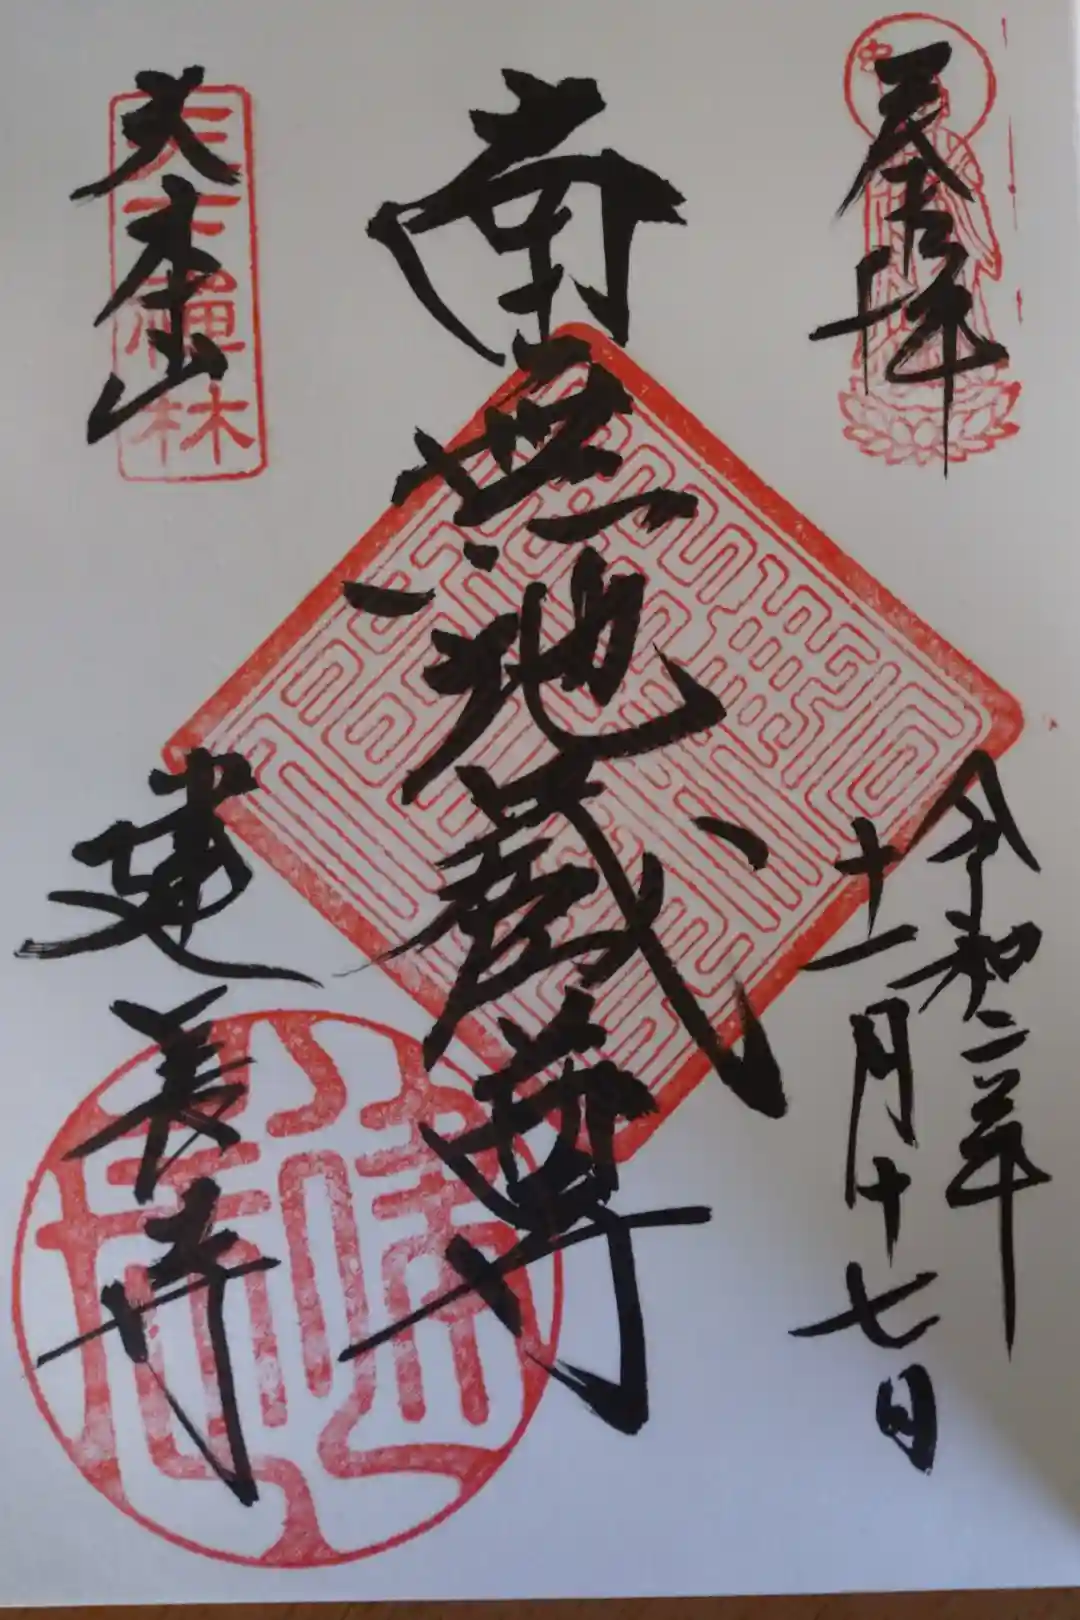 奉拝
令和二年
十一月十七日
南無地蔵尊
大本山
建長寺
天下禪林